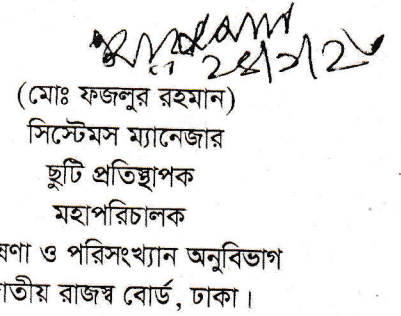 (মোঃ ফজলুর রহমান)
সিস্টেমস ম্যানেজার
ছুটি প্রতিস্থাপক
মহাপরিচালক
ষণা ও পরিসংখ্যান অনুবিভাগ
তীয় রাজস্ব বোর্ড, ঢাকা।